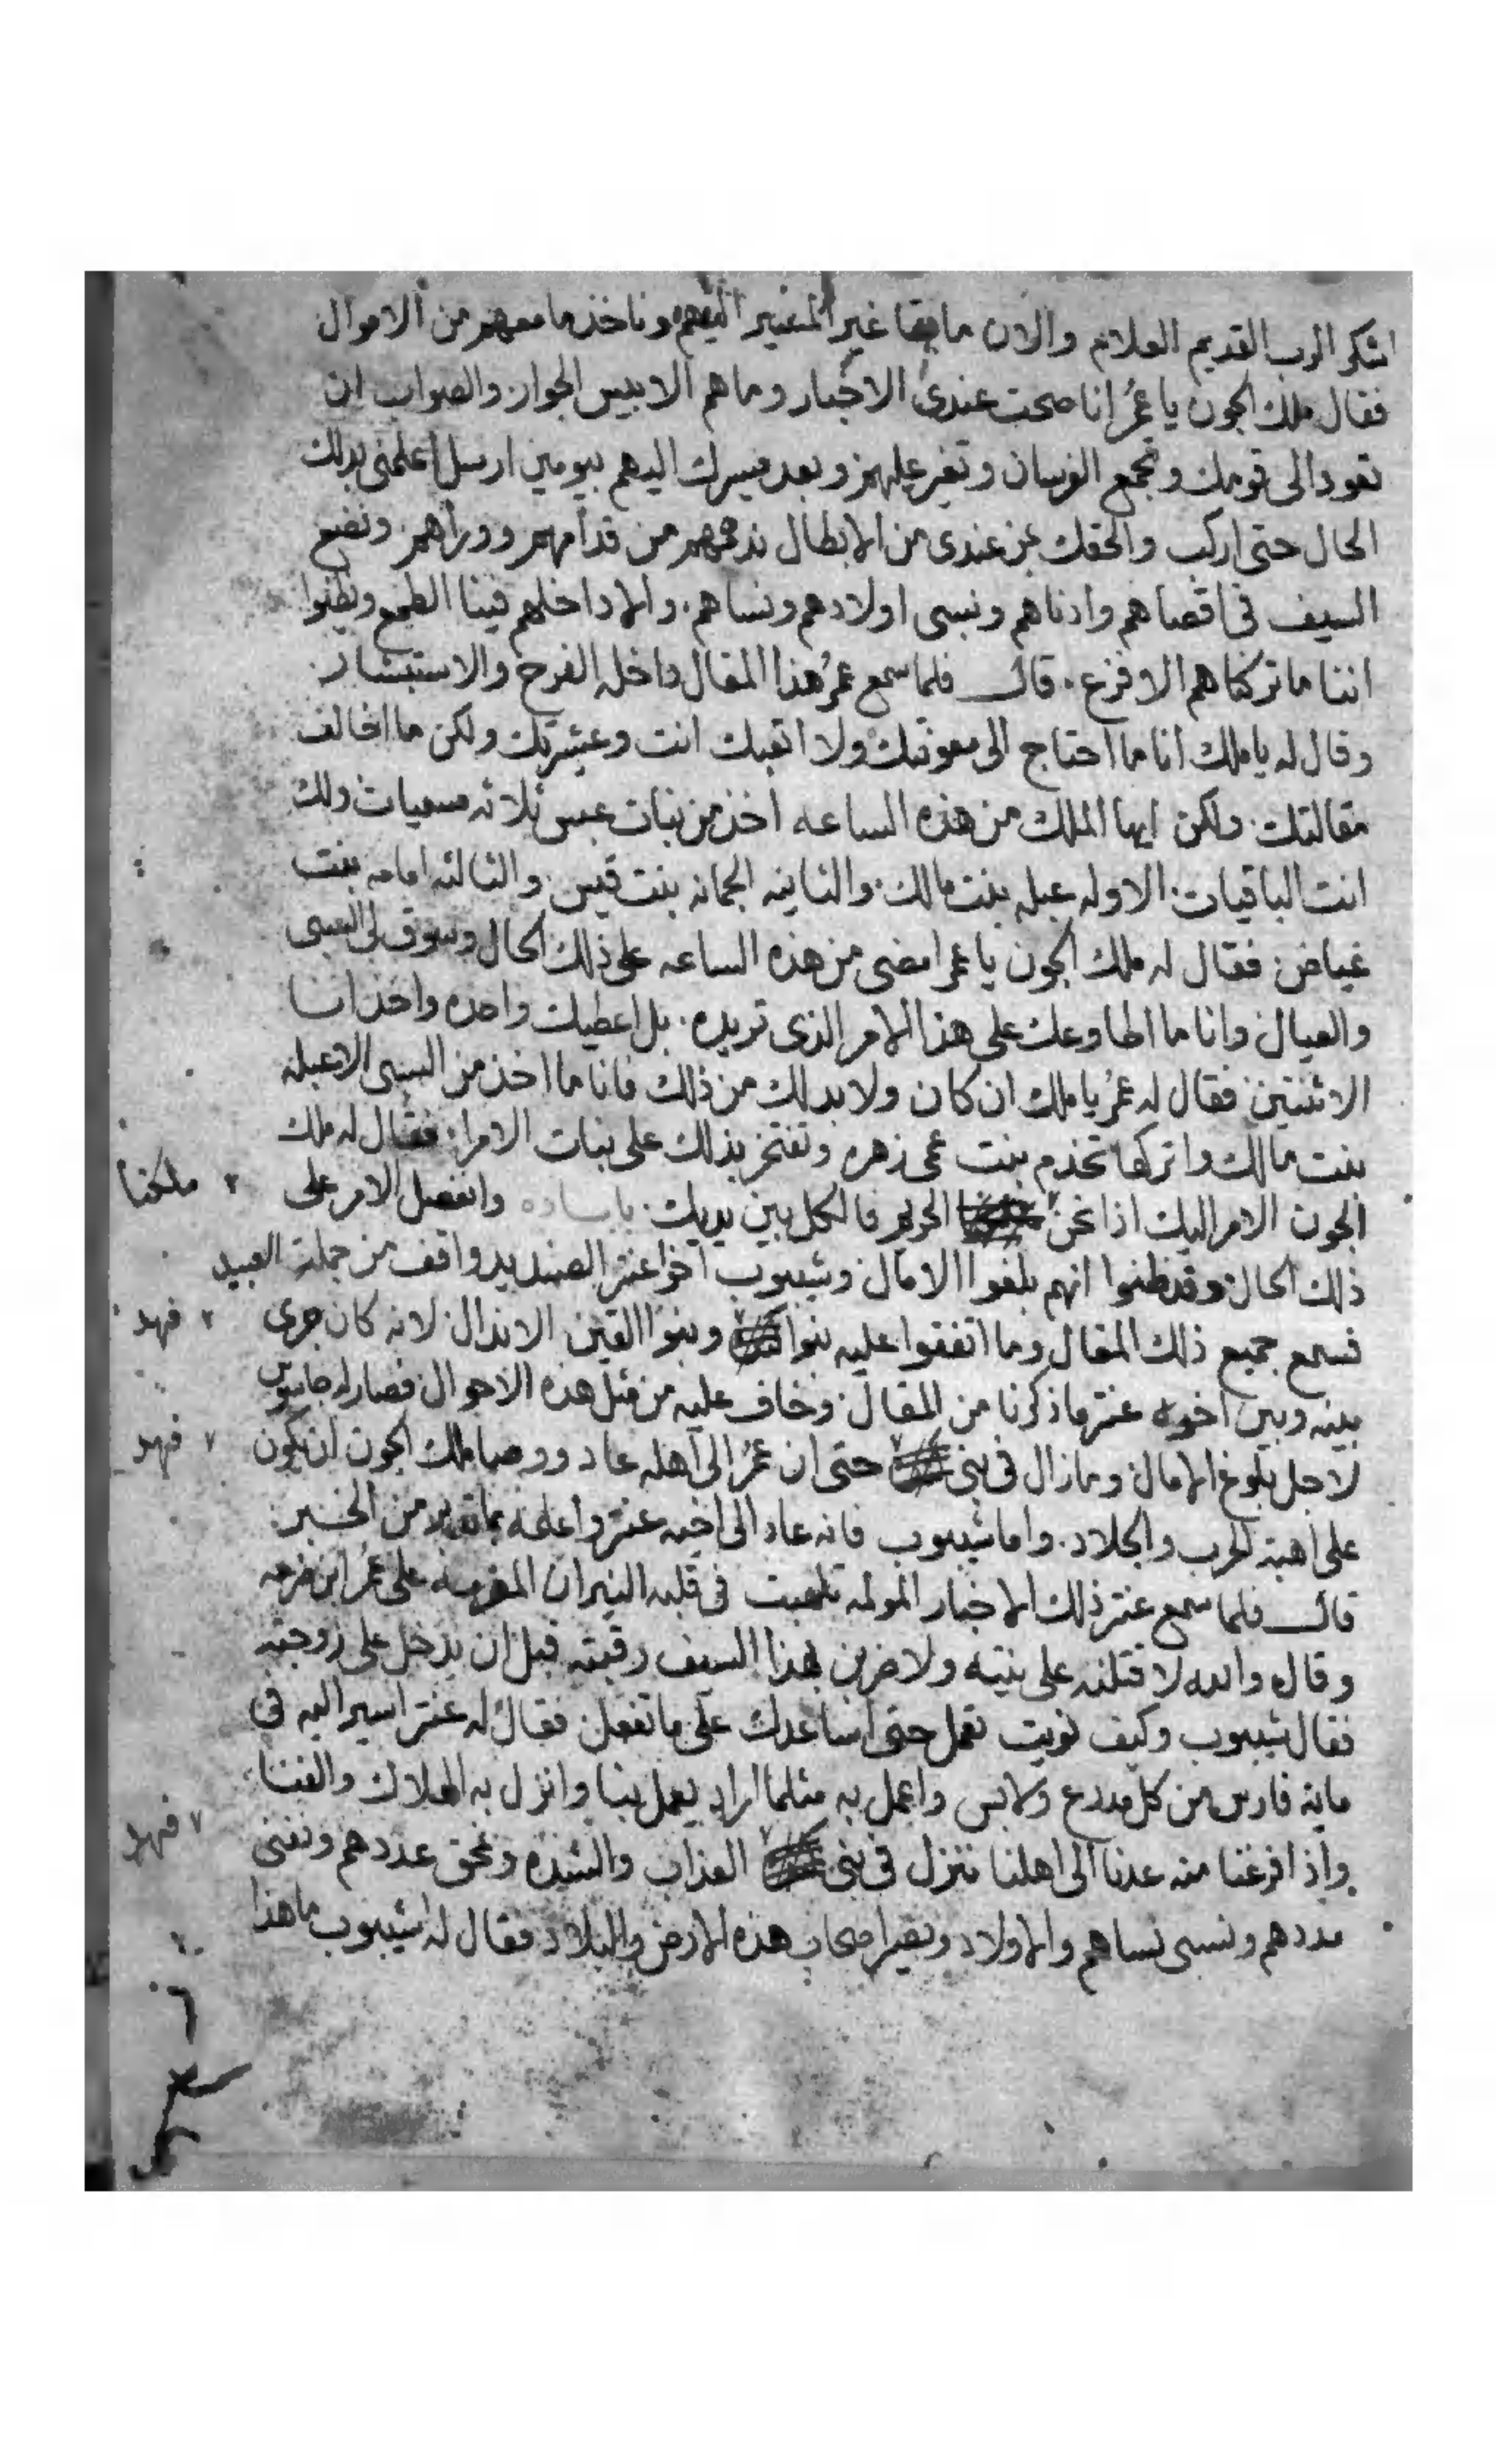 اشكر الرب القديم العلام والان ما بقا غير المسير اليهم وناخذ ما معهم من الاموال
فقال ملك الجون يا عمرُ انا صحت عندى الاخبار وما هم الا بيس الجوار والصواب ان
تعود الى قومك وتجمع الفرسان وتغير عليهم وبعد مسيرك اليهم بيومين ارسل اعلمنى بدلك
الحال حتى اركب والحقك بمن عندى من الابطال ندهمهم من قدامهم ووراهم ونضع
السيف فى اقصاهم وادناهم ونسبى اولادهم ونساهم والا داخلهم فينا الطمع وظنوا
اننا ما تركناهم الا فزع قال فلما سمع عمرُ هذا المقال داخله الفرح والاستبشار
وقال له يا ملك انا ما احتاج الى معونتك ولا اتعبك انت وعشيرتك ولكن ما اخالف
مقالتك ولكن ايها الملك من هذه الساعه اخذ من بنات عبس ثلاثه مسميات ولك
انت الباقيات الاوله عبله بنت مالك والثانيه الجمانه بنت قيس والثالثه امامه بنت
غياض فقال له ملك الجون يا عمر امضى من هذه الساعه على ذلك الحال وسوق لى السبى
والعيال وانا ما اطاوعك على هذا الامر الذى تريده بل اعطيك واحده واخذ انا
الاثنتين فقال له عمرُ يا ملك ان كان ولا بد لك من ذلك فانا ما اخذ من السبى الا عبله
بنت مالك واتركها تخدم بنت عمى زهره وتفتخر بذلك على بنات الامرا فقال له ملك
الجون الامر اليك اذا نحن الحريم فالكل بين يديك يا ساده وانفصل الامر على
ملكنا
ذلك الحال وقد ظنوا انهم بلغوا الامال وشيبوب اخو عنتر الصنديد واقف من جملة العبيد
فسمع جميع ذلك المقال وما اتفقوا عليه بنوا وبنوا القين الاندال لانه كان جرى
فهد
بينه وبين اخوه عنتر ما ذكرنا من المقال وخاف عليه من مثل هذه الاحوال فصار له جاسوس
لاجل بلوغ الامال وما زال فى بنى حتى ان عمرُ الى اهله عاد ووصا ملك الجون ان يكون
فهد
على اهبة الحرب والجلاد واما شيبوب فانه عاد الى اخيه عنتر واعلمه بما تقدم من الخبر
قال فلما سمع عنتر ذلك الاخبار المولمه تلهبت فى قلبه النيران المضرمه على عمرُ ابن
وقال والله لاقتلنه على نيته ولاضربن بهذا السيف رقبته قبل ان يدخل على زوجته
فقال شيبوب وكيف نويت تعمل حتى اساعدك على ما تفعل فقال له عنتر اسير اليه فى
مايه فارس من كل مدرع ولابس واعمل به مثلما اراد يعمل بنا وانزل به الهلاك والفنا
واذا فرغنا منه عدنا الى اهلنا ننزل فى بنى العذاب والشده ونمحق عددهم ونفنى
فهد
مددهم ونسبى نساهم والاولاد ونصير اصحاب هذه الارض والبلاد فقال له شيبوب ما هذا